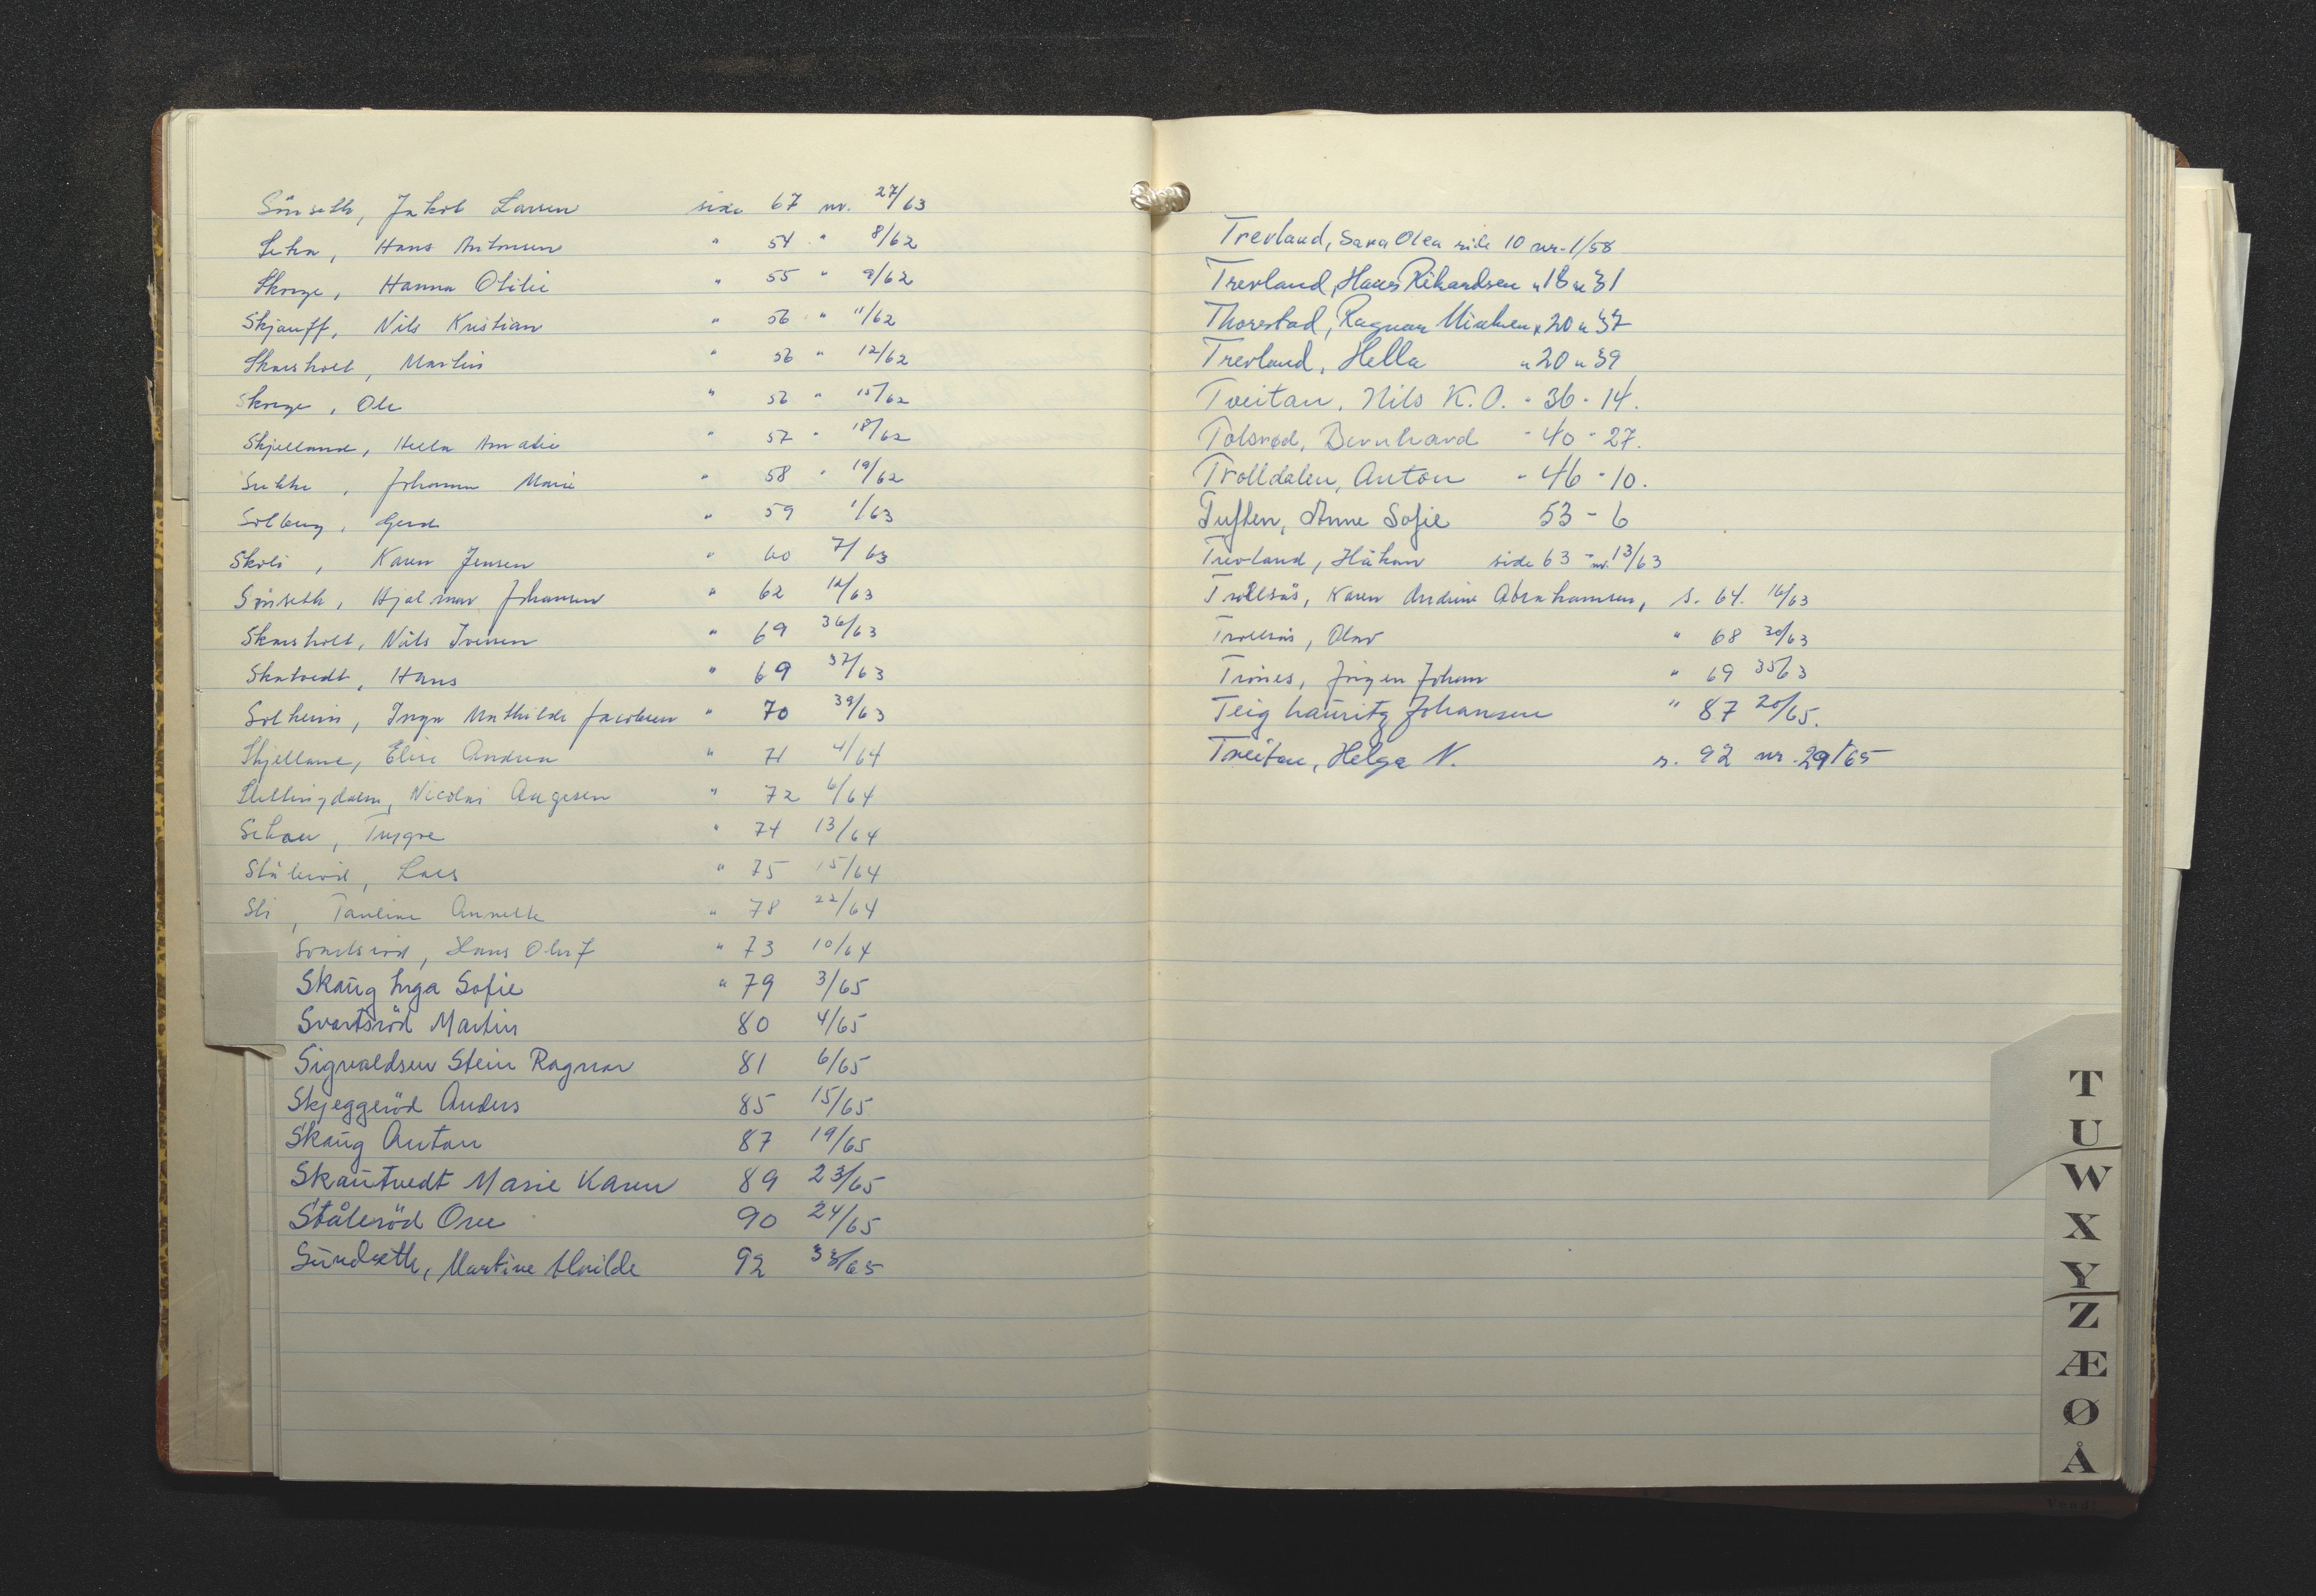 Sönseth, Jakob Larsen side 67 nr. 27/63
Hans Antonsen " 54 " 8/62
Skorge, Hanna Otilie " 55 " 9/62
Skjauff, Nils Kristian " 56 " 11/62
Skarsholt, Martin " 56 " 12/62
Skorge, Ole " 56 " 15/62
Skjelland, Hella Amalie " 57 " 18/62
Johanne Marie " 58 " 19/62
Solberg, Gerd " 59 1/63
Skoli, Karen Jensen " 60 7/63
Sönseth, Hjalmar Johansen " 62 12/63
Skarsholt, Nils Iversen " 69 36/63
Skatvedt, Hans " 69 37/63
Solheim, Inga Mathilde Jacobsen " 70 39/63
Skjelland, Elise Andrea " 71 4/64
Nicolai Aagesen " 72 6/64
Schau, Trygve " 74 13/64
Stålerød, Lars " 75 15/64
Sti, Pauline Annette " 78 22/64
Svartsröd, Hans Oluf " 73 10/64
Skaug Inga Sofie " 79 3/65
Svartsröd Martin 80 4/65
Sigvaldsen Stein Ragnar 81 6/65
Skjeggeröd Anders 85 15/65
Skaug Anton 87 19/65
Skautvedt Marie Karen 89 23/65
Ståleröd Ove 90 24/65
Sundseth, Martine Alvilde 92 33/65
Trevland, Sara Olea side 10 nr. 1/58
Trevland, Hans Rikardsen " 18 " 31
Thorestad, Ragnar " 20 " 37
Trevland, Hella " 20 " 39
Tveitan, Nils K.O. " 36 - 14.
Tolsrød, Bernhard " 40 - 27.
Trolldalen, Anton " 46 - 10.
Tuften, Anne Sofie 53 - 6
Trevland, Håkon side 63 - nr. 13/63
Trollsås, Karen Andrine Abrahamsen, s. 64. 16/63
Trollsås, Olav " 68 30/63
Trönes, Jörgen Johan " 69 35/63
Teig Lauritz Johansen " 87 20/65.
Tveitan, Helga N. s. 92 nr. 29/65
T
U
W
X
Y
Z
Æ
Ø
Å